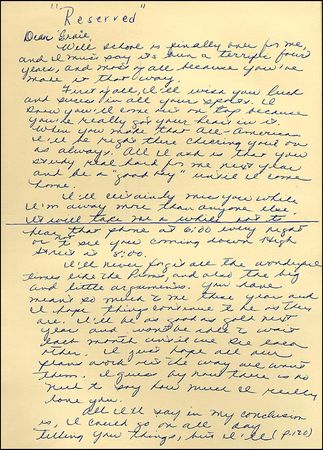 "Reserved"
Dear Ernie,
Well school is finally over for me,
and I must say it's been a terrific four
years, and most of all because you've
made it that way.
First of all, I'll wish you luck
and success in all your sports. I
know you'll come out on top because
you've really got your heart in it.
When you make that All-American
I'll be right there cheering you on
as always. All I ask is that you
study real hard for me next year
and be a "good boy" until I come
home.
I'll certainly miss you while
I'm away more than anyone else.
It will take me a while not to
hear that phone at 6:00 every night
or to see you coming down High
Street at 8:00.
I'll never forget all the wonderful
times like the Proms, and also the big
and little arguments. You have
meant so much to me these year and
I hope things continue to be as they
are. I'll be as good as gold next
year and won't be able to wait
each month until we see each
other. I just hope all our
plans work out the way we want
them. I guess by now there is no
need to say how much I really
love you.
All I'll say in my conclusion
is, I could go on all day
telling you things, but I'll (p.120)